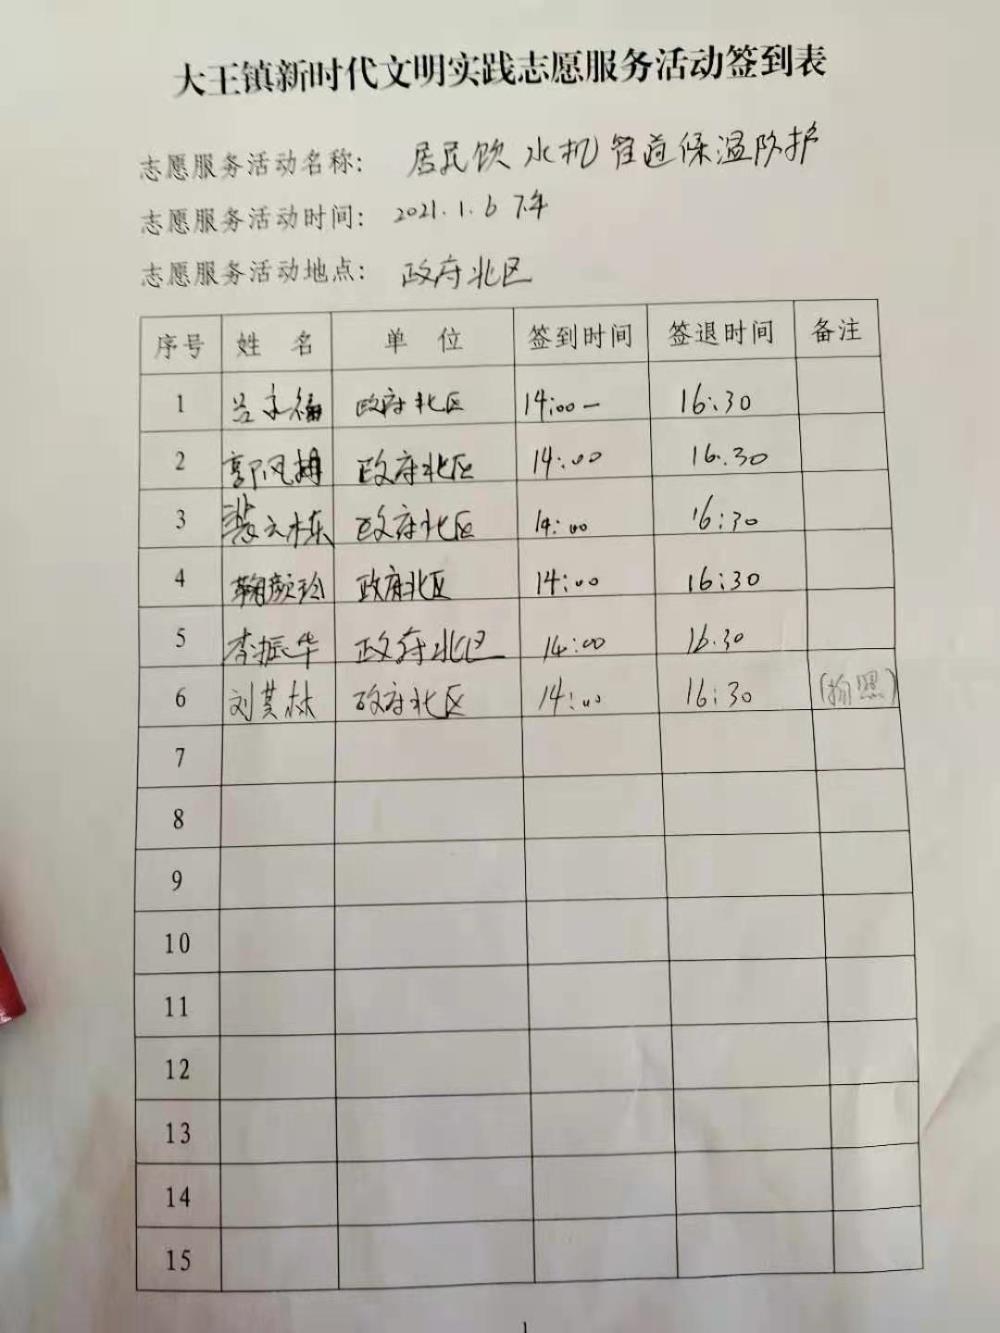 大王镇新时代文明实践志愿服务活动签到表
志愿服务活动名称: 居民饮水机管道保温防护
志愿服务活动时间: 2021.1.6 下午
志愿服务活动地点: 政府北区
序号 姓名 单位 签到时间 签退时间 备注
1 吕永福 政府北区 14:00- 16:30
2 郭风 政府北区 14:00 16:30
3 政府北区 14:00 16:30
4 鞠颜玲 政府北区 14:00 16:30
5 李振华 政府北区 14:00 16:30
6 刘其林 政府北区 14:00 16:30
7
8
9
10
11
12
13
14
15
1